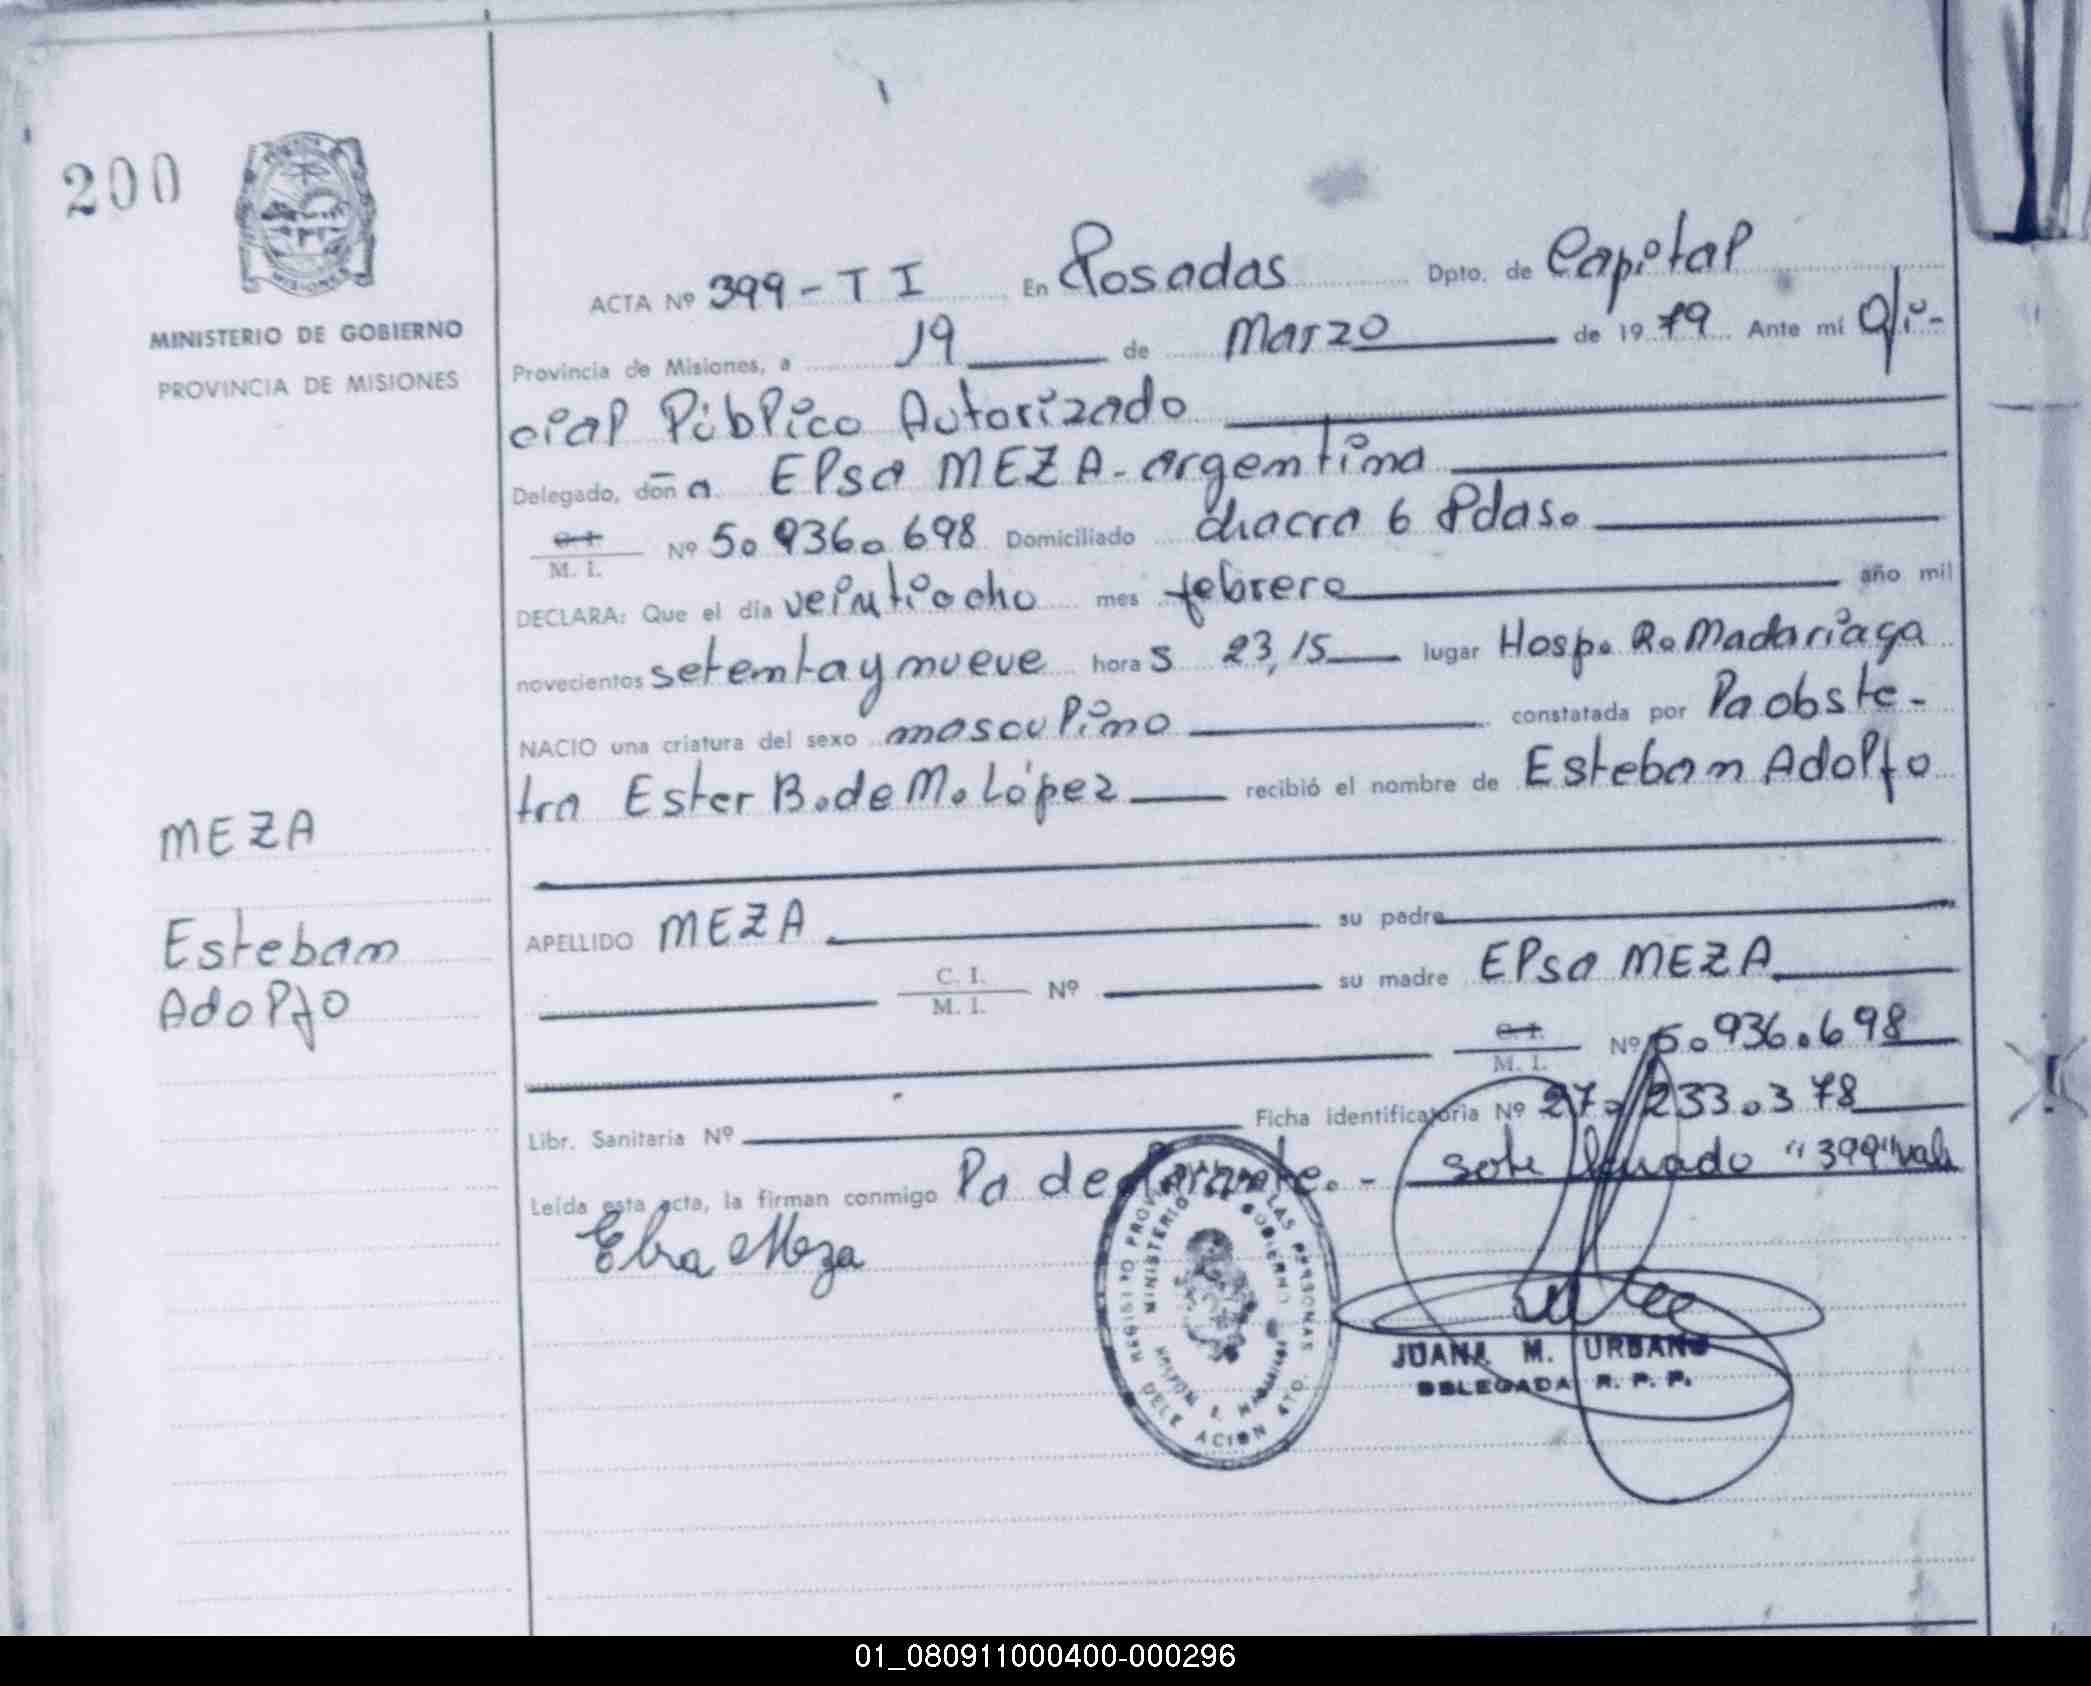 200
MINISTERIO DE GOBIERNO
PROVINCIA DE MISIONES
ACTA Nº 399-T I En Posadas Dpto. de Capital
Provincia de Misiones, a 19 de Marzo de 19 79 Ante mí Ofi-
cial Público Autorizado
Delegado, doña Elsa MEZA - argentina
C. I.
M. I. Nº 5.936.698 Domiciliado chacra 6 Pdas.
DECLARA: Que el día veintiocho mes febrero año mil
novecientos setenta y nueve horas 23,15 lugar Hosp. R. Madariaga
NACIO una criatura del sexo masculino constatada por la obste-
tra Ester B. de M. López recibió el nombre de Esteban Adolfo
MEZA
Esteban
Adolfo
APELLIDO MEZA su padre
C. I.
M. I. Nº su madre Elsa MEZA
C. I.
M. I. Nº 5.936.698
Libr. Sanitaria Nº Ficha identificatoria Nº 27.233.378
Leída esta acta, la firman conmigo la declarante.- "399" vale
Elsa Meza
REGISTRO PROVINCIAL DE LAS PERSONAS
MINISTERIO DE GOBIERNO
DELEGACION
JUANA M. URBANO
DELEGADA R. P. P.
01_080911000400-000296